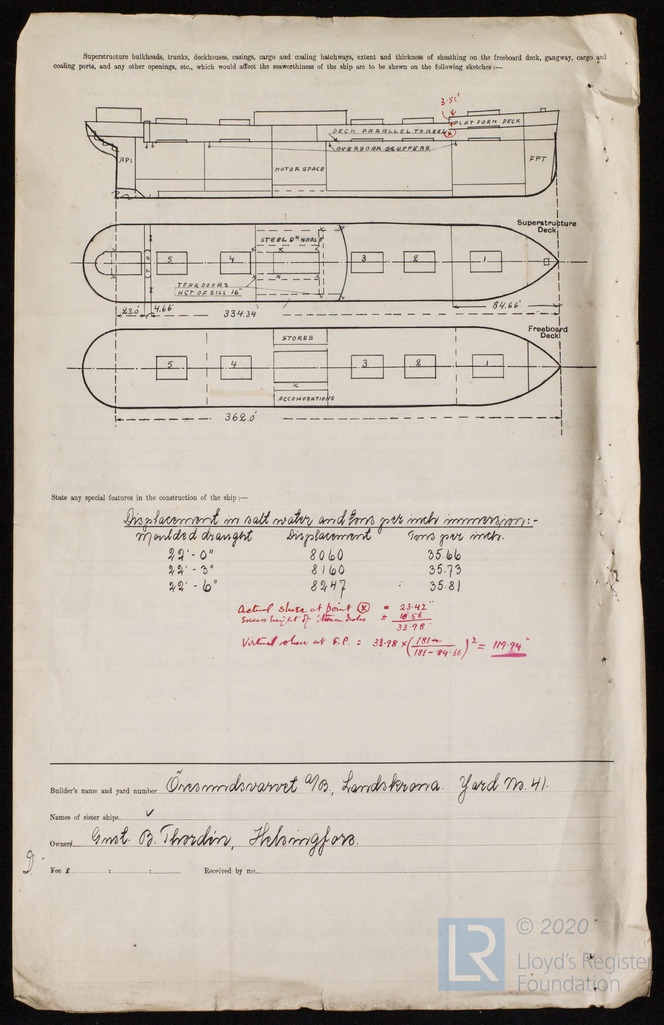 Superstructure bulkheads, trunks, deckhouses, casings, cargo and coaling hatchways, extent and thickness of sheathing on the freeboard deck, gangway, cargo and
coaling ports, and any other openings, etc., which would affect the seaworthiness of the ship are to be shewn on the following sketches :—
3.51'
PLATFORM DECK
DECK PARALLEL TO KEEL
X
OVERBOAR SCUPPERS
API
MOTOR SPACE
FPT
Superstructure
Deck
STEEL DK HOUSE
5
4
3
2
1
TEAK DOORS
HGT OF SILL 16"
23.0'
4.66'
334.34
84.66'
Freeboard
Deck
STORES
5
4
3
2
1
ACCOMODATIONS
362.0'
State any special features in the construction of the ship :—
Displacement in salt water and tons per inch immersion:-
Moulded draught Displacement Tons per inch.
22'-0" 8060 35.66
22'-3" 8160 35.73
22'-6" 8247 35.81
Actual sheer at point X = 23.42"
Excess height of = 10.56
33.98"
Virtual sheer at F.P. = 33.98 × (181 / 181-84.66)² = 119.94"
Builder's name and yard number Öresundsvarvet A/B, Landskrona. Yard No. 41.
Names of sister ships
Owners Gust. B. Thordén, Helsingfors.
Fee £ : :
Received by me
© 2020
LR
Lloyd's Register
Foundation